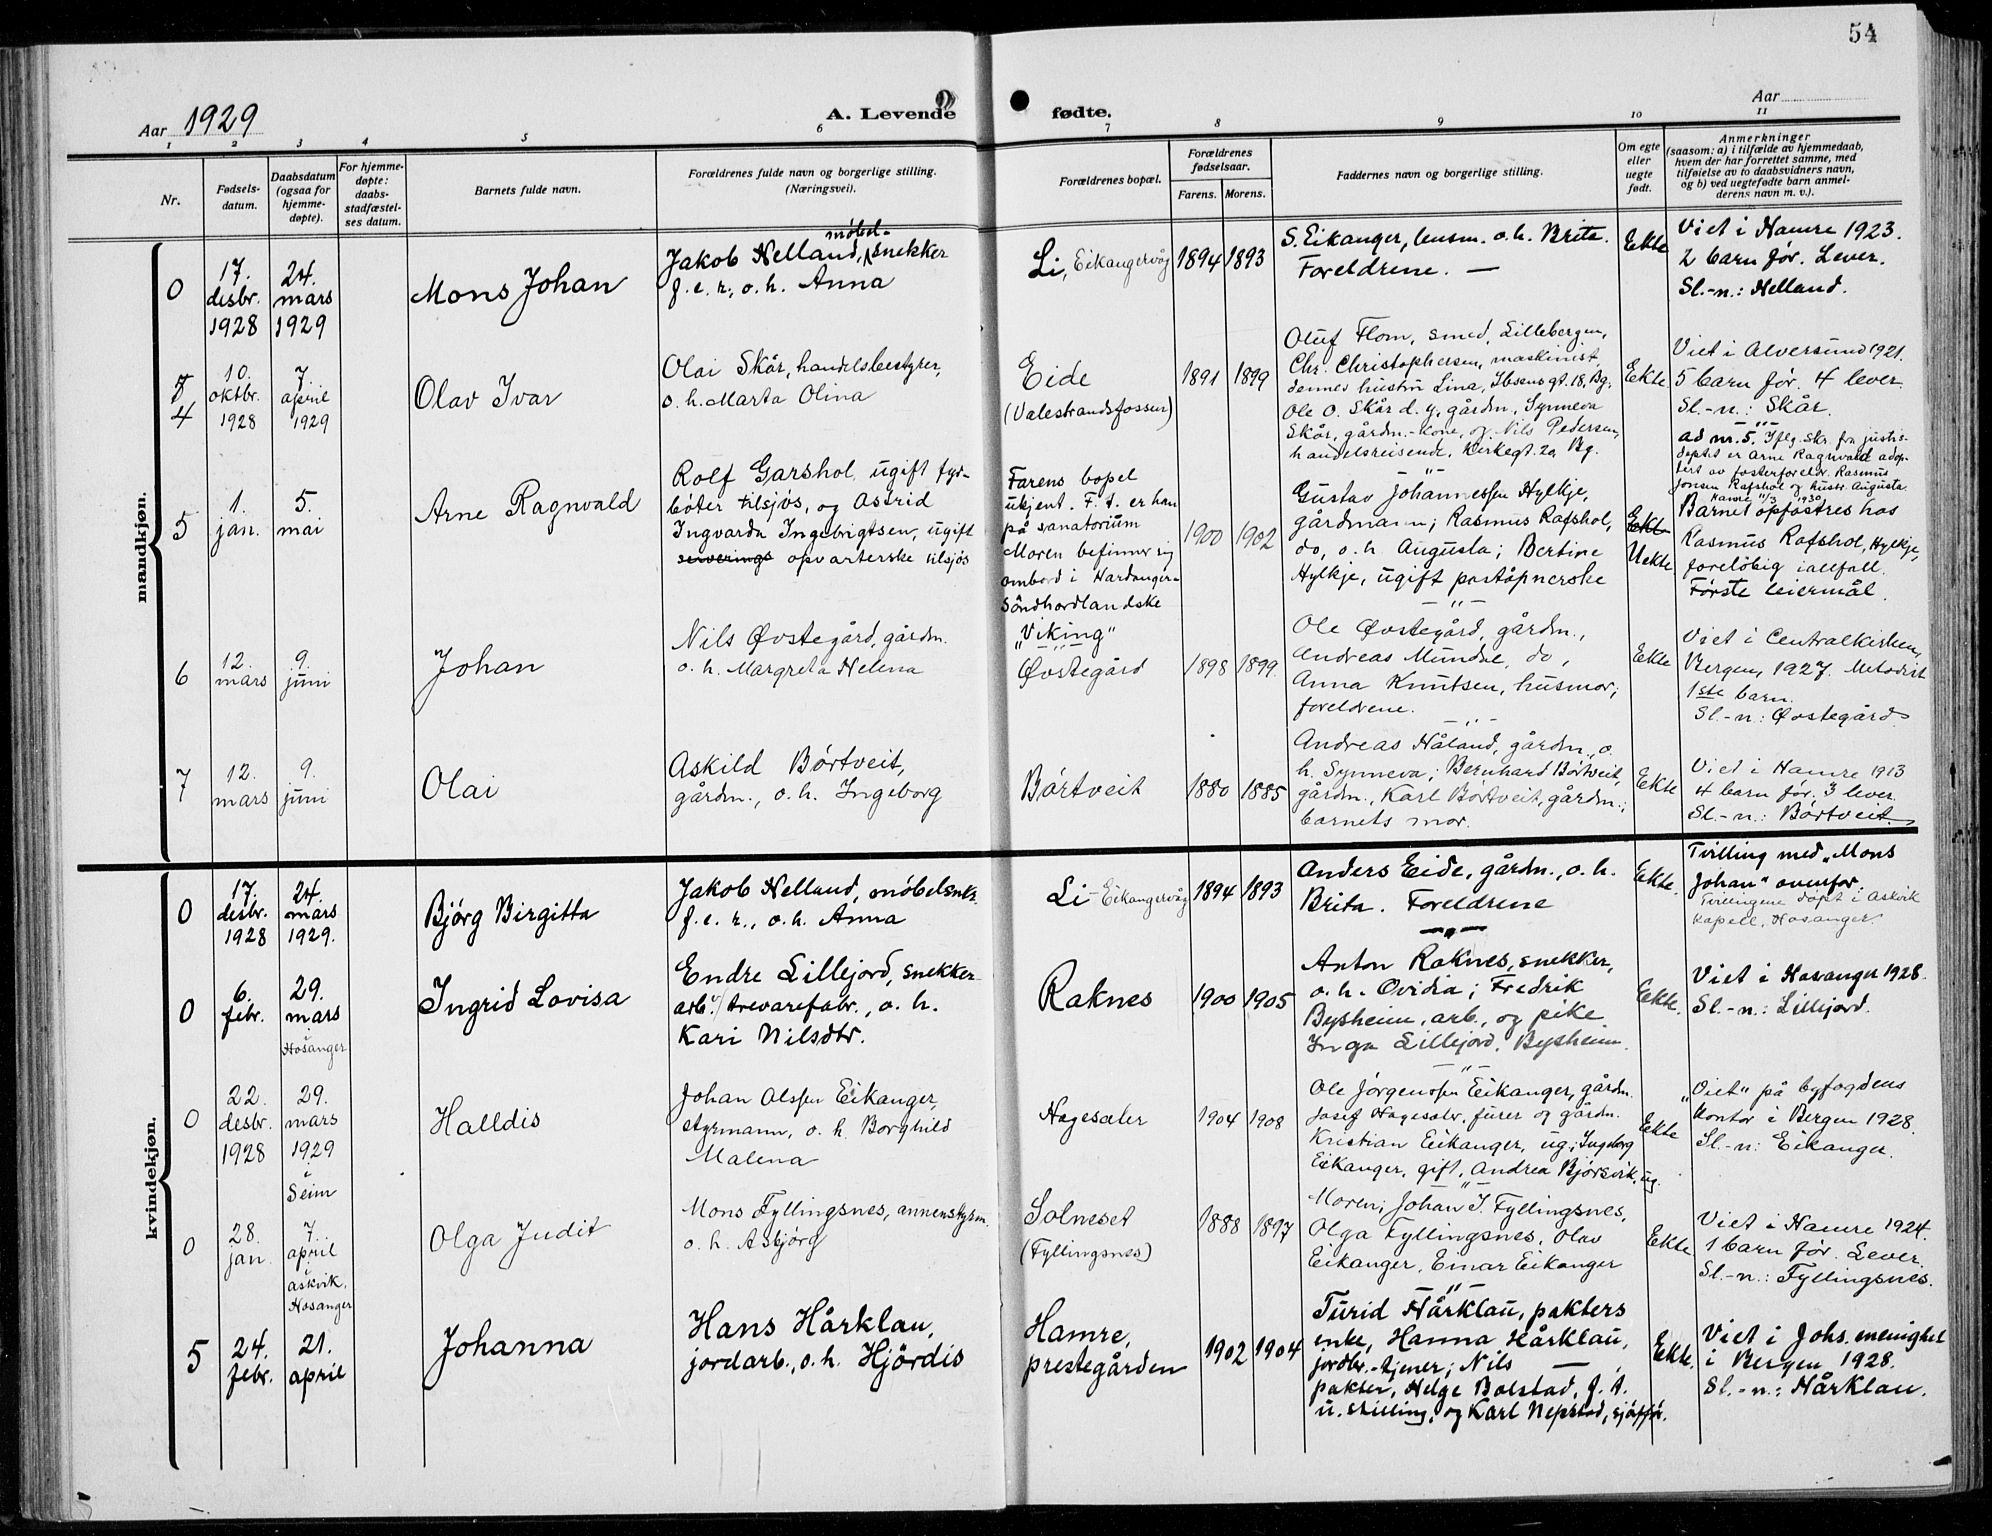 54
Aar 1929
A. Levende fødte.
Aar
1 2 3 4 5 6 7 8 9 10 11
Nr.
Fødsels-
datum.
Daabsdatum
(ogsaa for
hjemme-
døpte).
For hjemme-
døpte:
daabs-
stadfæstel-
ses datum.
Barnets fulde navn.
Forældrenes fulde navn og borgerlige stilling.
(Næringsvei).
Forældrenes bopæl.
Forældrenes
fødselsaar.
Farens. Morens.
Faddernes navn og borgerlige stilling.
Om egte
eller
uegte
født.
Anmerkninger
(saasom: a) i tilfælde av hjemmedaab,
hvem der har forrettet samme, med
tilføielse av to daabsvidners navn,
og b) ved uegtefødte barn anmel-
derens navn m. v.).
mandkjøn.
0
17.
desbr.
1928
24.
mars
1929
Mons Johan
møbel-
Jakob Helland, snekker
f. e. r., o. h. Anna
Li, Eikangervåg
1894 1893
S. Eikanger, husm. o. h. Brita.
Foreldrene. —
Ekte
Viet i Hamre 1923.
2 barn før. Lever.
Sl.-n.: Helland.
4
10.
oktbr.
1928
7.
april
1929
Olav Ivar
Olai Skår, handelsbestyrer,
o. h. Marta Olina
Eide
(Valestrandsfossen)
1891 1899
Oluf Flom, smed, Lillebergen,
Chr. Christophersen, maskinist
dennes hustru Lina, Ibsens gt. 18, Bg.
Ole O. Skår d. y. gårdm., Synneva
Skår, gårdm.-kone, og Nils Pedersen,
handelsreisende, Kirkegt. 20 Bg.
Ekte
Viet i Alversund 1921.
5 barn før. 4 lever.
Sl.-n.: Skår.
5
1.
jan.
5.
mai
Arne Ragnvald
Rolf Garshol, ugift fyr-
bøter tilsjøs, og Astrid
Ingvarda Ingebrigtsen, ugift
serverings opvarterske tilsjøs
Farens bopel
ukjent. F. t. er han
på sanatorium
Moren befinner sig
ombord i Hardanger-
Söndhordlandske
"Viking"
1900 1902
Gustav Johannessen Hylkje,
gårdmann; Rasmus Rafshol,
do, o. h. Augusta; Bertine
Hylkje, ugift poståpnerske
Ekte
Uekte
ad nr. 5. Iflg. skr. fra justis-
dept.t er Arne Ragnvald adop-
tert av fosterforeldr. Rasmus
Jonsen Rafshol og hustr. Augusta.
Hamre 11/3 1930
Barnet opfostres hos
Rasmus Rafshol, Hylkje,
foreløbig iallfall.
Første leiermål.
6
12.
mars
9.
juni
Johan
Nils Øvstegård, gårdm.
o. h. Margreta Helena
Øvstegård
1898 1899.
Ole Øvstegård, gårdm.,
Andreas Mundal, do,
Anna Knutsen, husmor;
foreldrene.
Ekte
Viet i Centralkirken,
Bergen, 1927. Metodist
1ste barn.
Sl.-n.: Øvstegård
7
12.
mars
9.
juni
Olai
Askild Börtveit,
gårdm., o. h. Ingeborg
Börtveit
1880 1885
Andreas Håland, gårdm., o.
h. Synneva; Bernhard Börtveit,
gårdm., Karl Börtveit, gårdm.;
barnets mor.
Ekte
Viet i Hamre 1913
4 barn før. 3 lever.
Sl.-n.: Börtveit.
kvindekjøn.
0
17.
desbr.
1928
24.
mars
1929.
Bjørg Birgitta
Jakob Helland, møbelsnk.
f. e. r., o. h. Anna
Li - Eikangervåg
1894 1893
Anders Eide, gårdm., o. h.
Brita. Foreldrene
Ekte.
Tvilling med "Mons
Johan" ovenfor.
Tvillingene døpt i Askvik
kapell, Hosanger
0
6.
febr.
29.
mars
Hosanger
Ingrid Lovisa
Endre Lillejord, snekker
arb. v/ trevarefabr., o. h.
Kari Nilsdtr.
Raknes
1900 1905
Anton Raknes, snekker,
o. h. Ovidia; Fredrik
Bysheim, arb., og pike
Inga Lillejord, Bysheim.
Ekte.
Viet i Hosanger 1928.
Sl.-n.: Lillejord.
0
22.
desbr.
1928
29.
mars
1929
i
Seim
Halldis
Johan Olssen Eikanger,
styrmann, o. h. Borghild
Malena
Hagesæter
1904 1908
Ole Jørgensen Eikanger, gårdm.
Josef Hagesæter, furer og gårdm.
Kristian Eikanger, ug; Ingeborg
Eikanger, gift, Andrea Bjørsvik, ug.
Ekte
"Viet" på byfogdens
kontor i Bergen 1928.
Sl.-n: Eikanger.
0
28.
jan.
7.
april
i
Askvik,
Hosanger
Olga Judit
Mons Fyllingsnes, annenstyrm.
o. h. Asbjørg
Solneset
(Fyllingsnes)
1888 1897
Moren; Johan I. Fyllingsnes,
Olga Fyllingsnes, Olav
Eikanger, Einar Eikanger
Ekte
Viet i Hamre 1924.
1 barn før. Lever.
Sl.-n.: Fyllingsnes.
5
24.
febr.
21.
april
Johanna
Hans Hårklau,
jordarb., o. h. Hjördis
Hamre,
prestegården
1902 1904
Turid Hårklau, pakters
enke, Hanna Hårklau,
jordbr.-tjener; Nils — ,
pakter, Helge Bolstad, f. t.
u. stilling, og Karl Nepstad, sjåffør.
Ekte.
Viet i Johs. menighet
i Bergen 1928.
Sl.-n.: Hårklau.